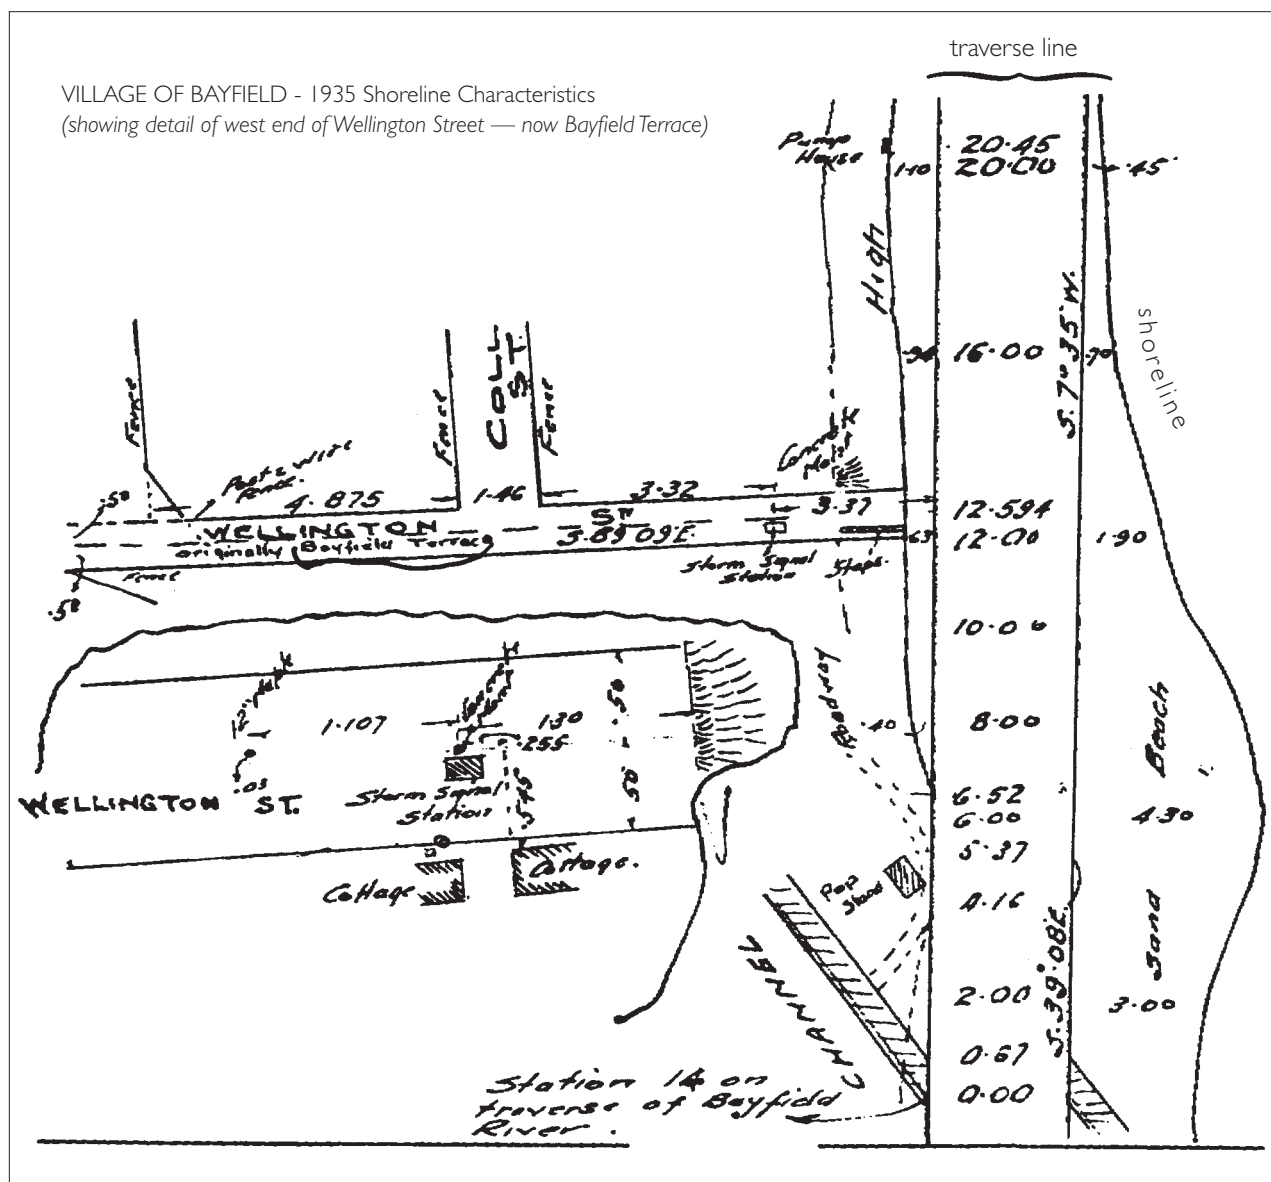 traverse line
VILLAGE OF BAYFIELD - 1935 Shoreline Characteristics
(showing detail of west end of Wellington Street — now Bayfield Terrace)
Pump
House
1.10
20.45
20.00
.45
High
S. 7° 35' W.
shoreline
.94
16.00
.70
Fence
Fence
COLL
ST.
Fence
Post & Wire
Fence.
.50
4.875
1.46
3.32
3.37
12.594
WELLINGTON
ST.
originally Bayfield Terrace
.63
12.00
1.90
Storm Signal
Station
Steps.
Fence
.50
10.00
Roadway
.50
1.107
.130
.255
.40
8.00
Beach
.05
WELLINGTON ST.
Storm Signal
Station
.545
.50
6.52
6.00
4.30
5.37
Cottage
Cottage.
Pop
Stand
4.16
S. 39° 08' E.
Sand
CHANNEL
2.00
3.00
0.67
0.00
Station 14 on
traverse of Bayfield
River.